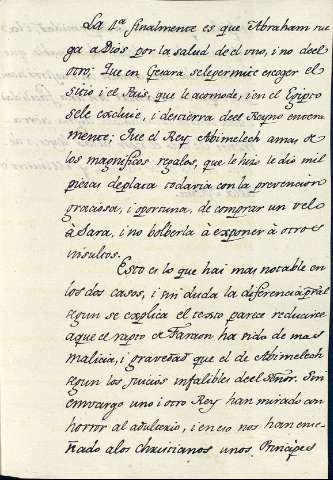 La 4ª finalmente es que Abraham rue
ga a Dios por la salud de el uno, i no de el
otro; Que en Gerara se le permite escoger el
sitio i el Pais, que le acomode, i en el Egipto
se le excluie, i destierra de el Reyno entera
mente; Que el Rey Abimelech amas de
los magnificos regalos, que le hizo le dio mil
piezas de plata todavia con la prevencion
graciosa, i oportuna, de comprar un velo
à Sara, i no bolberla à exponer à otro es
insultos.
Esto es lo que hai mas notable en
los dos casos, i sin duda la diferencia pral
segun se explica el texto parece reducirse
a que el rapto de Faraon ha sido de mas
malicia, i gravedad que el de Abimelech
segun los juicios infalibles de el Señor. Sin
embargo uno i otro Rey han mirado con
horror al adulterio, i en esso nos han ense-
ñado a los christianos unos Principes